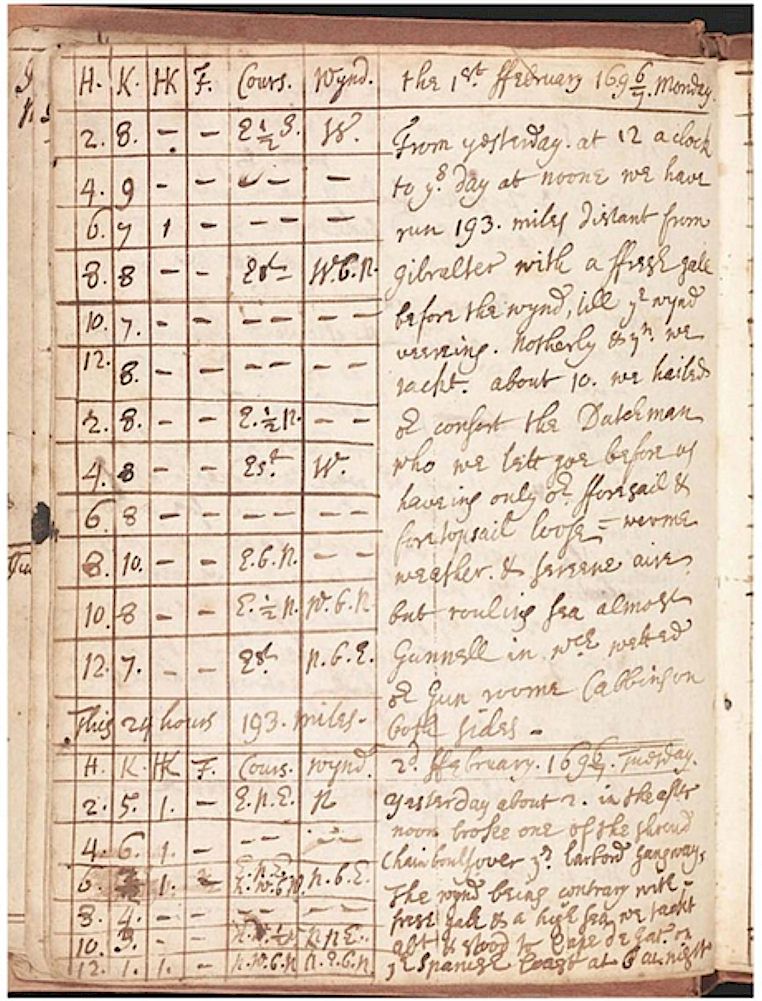 H. K. HK F. Cours. Wynd.
2. 8. - - E ½ S. W.
4. 9 - - - - -
6. 7 1 - - - -
8. 8 - - Est W.b.N.
10. 7. - - - - - -
12. 8. - - - - - -
2. 8. - - E. ½ N. - -
4. 8 - - Est. W.
6. 8 - - - - - -
8. 10. - - E.b.N. - -
10. 8 - - E. ½ N. W.b.N
12. 7. - - Est N.b.E.
This 24 hours 193. miles.
the 1st. ffebruary 169 6/7. Monday.
From yesterday. at 12 a clock
to ys day at noone we have
run 193. miles distant from
Gibralter with a ffresh gale
before the wynd, till ye wynd
veereing. Notherly & yn. we
tackt. about 10. we hailed
or consort the Dutchman
who we lett goe before us
haveing only or. fforesail &
foretopsail loose = warme
weather. & sereene aire
but rouling sea almost
Gunnell in wch wetted
or Gun roome Cabbins on
both sides -
H. K. HK F. Cours. Wynd.
2. 5. 1. - E.N.E. N
4. 6 1. - - - - -
6. 1. N.b.E.
8. 4. - - - - -
10. 3. - - N.N.E.
12. 1. 1. - N.W.b.N N.E.b.N
2d. ffebruary. 169 6/7. Tuesday.
Yesterday about 2. in the after
noon broke one of the shroud
Chain boults over ye larbord gangway,
The wynd being contrary with
fresh gale & a high sea, we tackt
& stood to Cape de Gat. on
ye Spanish Coast at 6 at night